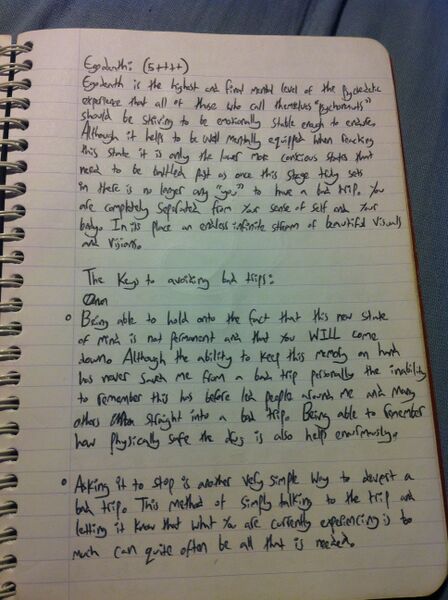 Egodeath: (5++++)
Egodeath is the highest and final mental level of the psychedelic
experience that all of those who call themselves "psychonauts"
should be striving to be emotionally stable enough to endure.
Although it helps to be well mentally equipped when reaching
this state it is only the lower more conscious states that
need to be battled past as once this stage truly sets
in there is no longer any "you" to have a bad trip. You
are completely separated from your sense of self and your
body. In its place an endless infinite stream of beautiful visuals
and visions.
The Keys to avoiding bad trips:
Being able to hold onto the fact that this new state
of mind is not permanent and that you WILL come
down. Although the ability to keep this memory on hand
has never saved me from a bad trip personally the inability
to remember this has before led people around me and many
others straight into a bad trip. Being able to remember
how physically safe the drug is also helps enormously.
Asking it to stop is another very simple way to divert a
bad trip. This method of simply talking to the trip and
letting it know that what you are currently experiencing is to
much can quite often be all that is needed.